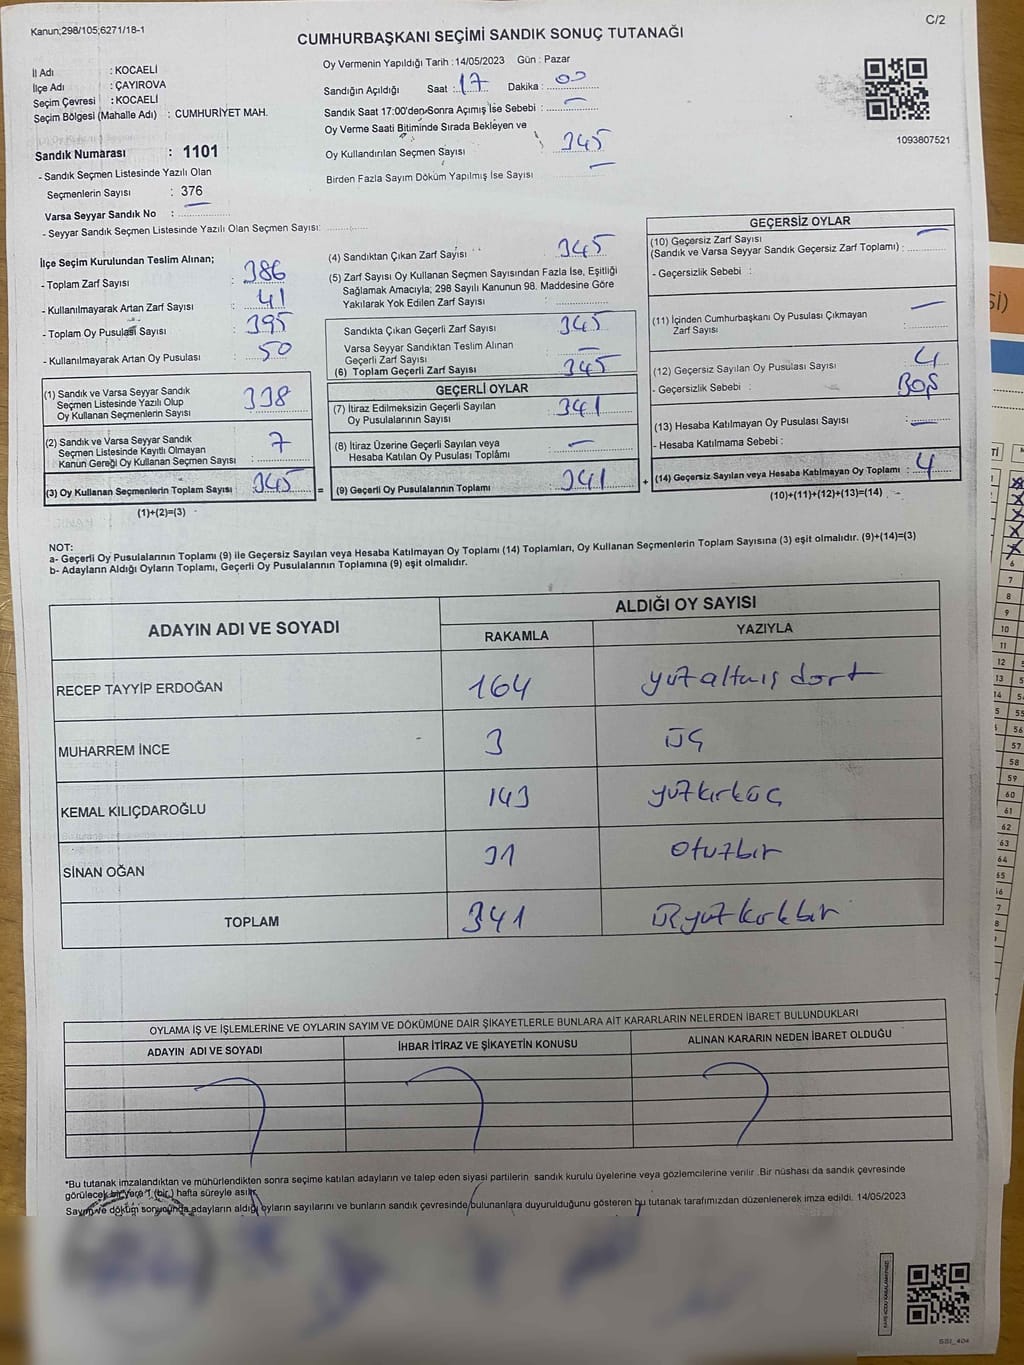 Kanun;298/105;6271/18-1
C/2
CUMHURBAŞKANI SEÇİMİ SANDIK SONUÇ TUTANAĞI
İl Adı : KOCAELİ
İlçe Adı : ÇAYIROVA
Seçim Çevresi : KOCAELİ
Seçim Bölgesi (Mahalle Adı) : CUMHURİYET MAH.
Sandık Numarası : 1101
- Sandık Seçmen Listesinde Yazılı Olan
Seçmenlerin Sayısı : 376
Varsa Seyyar Sandık No :
- Seyyar Sandık Seçmen Listesinde Yazılı Olan Seçmen Sayısı:
Oy Vermenin Yapıldığı Tarih : 14/05/2023 Gün : Pazar
Sandığın Açıldığı Saat : 17 Dakika : 00
Sandık Saat 17:00'den Sonra Açımış İse Sebebi : —
Oy Verme Saati Bitiminde Sırada Bekleyen ve
Oy Kullandırılan Seçmen Sayısı : 345
Birden Fazla Sayım Döküm Yapılmış İse Sayısı —
1093807521
İlçe Seçim Kurulundan Teslim Alınan;
- Toplam Zarf Sayısı : 386
- Kullanılmayarak Artan Zarf Sayısı : 41
- Toplam Oy Pusulası Sayısı : 395
- Kullanılmayarak Artan Oy Pusulası : 50
(1) Sandık ve Varsa Seyyar Sandık
Seçmen Listesinde Yazılı Olup
Oy Kullanan Seçmenlerin Sayısı : 338
(2) Sandık ve Varsa Seyyar Sandık
Seçmen Listesinde Kayıtlı Olmayan
Kanun Gereği Oy Kullanan Seçmen Sayısı : 7
(3) Oy Kullanan Seçmenlerin Toplam Sayısı : 345 =
(1)+(2)=(3)
(4) Sandıktan Çıkan Zarf Sayısı : 345
(5) Zarf Sayısı Oy Kullanan Seçmen Sayısından Fazla İse, Eşitliği
Sağlamak Amacıyla; 298 Sayılı Kanunun 98. Maddesine Göre
Yakılarak Yok Edilen Zarf Sayısı :
Sandıkta Çıkan Geçerli Zarf Sayısı : 345
Varsa Seyyar Sandıktan Teslim Alınan
Geçerli Zarf Sayısı : —
(6) Toplam Geçerli Zarf Sayısı : 345
GEÇERLİ OYLAR
(7) İtiraz Edilmeksizin Geçerli Sayılan
Oy Pusulalarının Sayısı : 341
(8) İtiraz Üzerine Geçerli Sayılan veya
Hesaba Katılan Oy Pusulası Toplamı : —
(9) Geçerli Oy Pusulalarının Toplamı : 341 +
GEÇERSİZ OYLAR
(10) Geçersiz Zarf Sayısı
(Sandık ve Varsa Seyyar Sandık Geçersiz Zarf Toplamı) : —
- Geçersizlik Sebebi :
(11) İçinden Cumhurbaşkanı Oy Pusulası Çıkmayan
Zarf Sayısı : —
(12) Geçersiz Sayılan Oy Pusulası Sayısı : 4
- Geçersizlik Sebebi : BOŞ
(13) Hesaba Katılmayan Oy Pusulası Sayısı : —
- Hesaba Katılmama Sebebi :
(14) Geçersiz Sayılan veya Hesaba Katılmayan Oy Toplamı : 4
(10)+(11)+(12)+(13)=(14)
NOT:
a- Geçerli Oy Pusulalarının Toplamı (9) ile Geçersiz Sayılan veya Hesaba Katılmayan Oy Toplamı (14) Toplamları, Oy Kullanan Seçmenlerin Toplam Sayısına (3) eşit olmalıdır. (9)+(14)=(3)
b- Adayların Aldığı Oyların Toplamı, Geçerli Oy Pusulalarının Toplamına (9) eşit olmalıdır.
ADAYIN ADI VE SOYADI
ALDIĞI OY SAYISI
RAKAMLA YAZIYLA
RECEP TAYYİP ERDOĞAN 164 yüzaltmış dört
MUHARREM İNCE 3 üç
KEMAL KILIÇDAROĞLU 143 yüzkırküç
SİNAN OĞAN 31 otuzbir
TOPLAM 341 üçyüzkırkbir
OYLAMA İŞ VE İŞLEMLERİNE VE OYLARIN SAYIM VE DÖKÜMÜNE DAİR ŞİKAYETLERLE BUNLARA AİT KARARLARIN NELERDEN İBARET BULUNDUKLARI
ADAYIN ADI VE SOYADI İHBAR İTİRAZ VE ŞİKAYETİN KONUSU ALINAN KARARIN NEDEN İBARET OLDUĞU
*Bu tutanak imzalandıktan ve mühürlendikten sonra seçime katılan adayların ve talep eden siyasi partilerin sandık kurulu üyelerine veya gözlemcilerine verilir. Bir nüshası da sandık çevresinde
görülecek bir yere 1 (bir) hafta süreyle asılır.
Sayım ve döküm sonucunda adayların aldığı oyların sayılarını ve bunların sandık çevresinde bulunanlara duyurulduğunu gösteren bu tutanak tarafımızdan düzenlenerek imza edildi. 14/05/2023
SSI_404